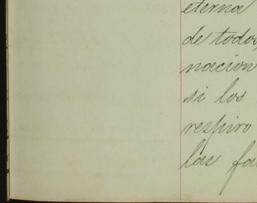 eterna
de todos
nacion
si los
respiro
las fa